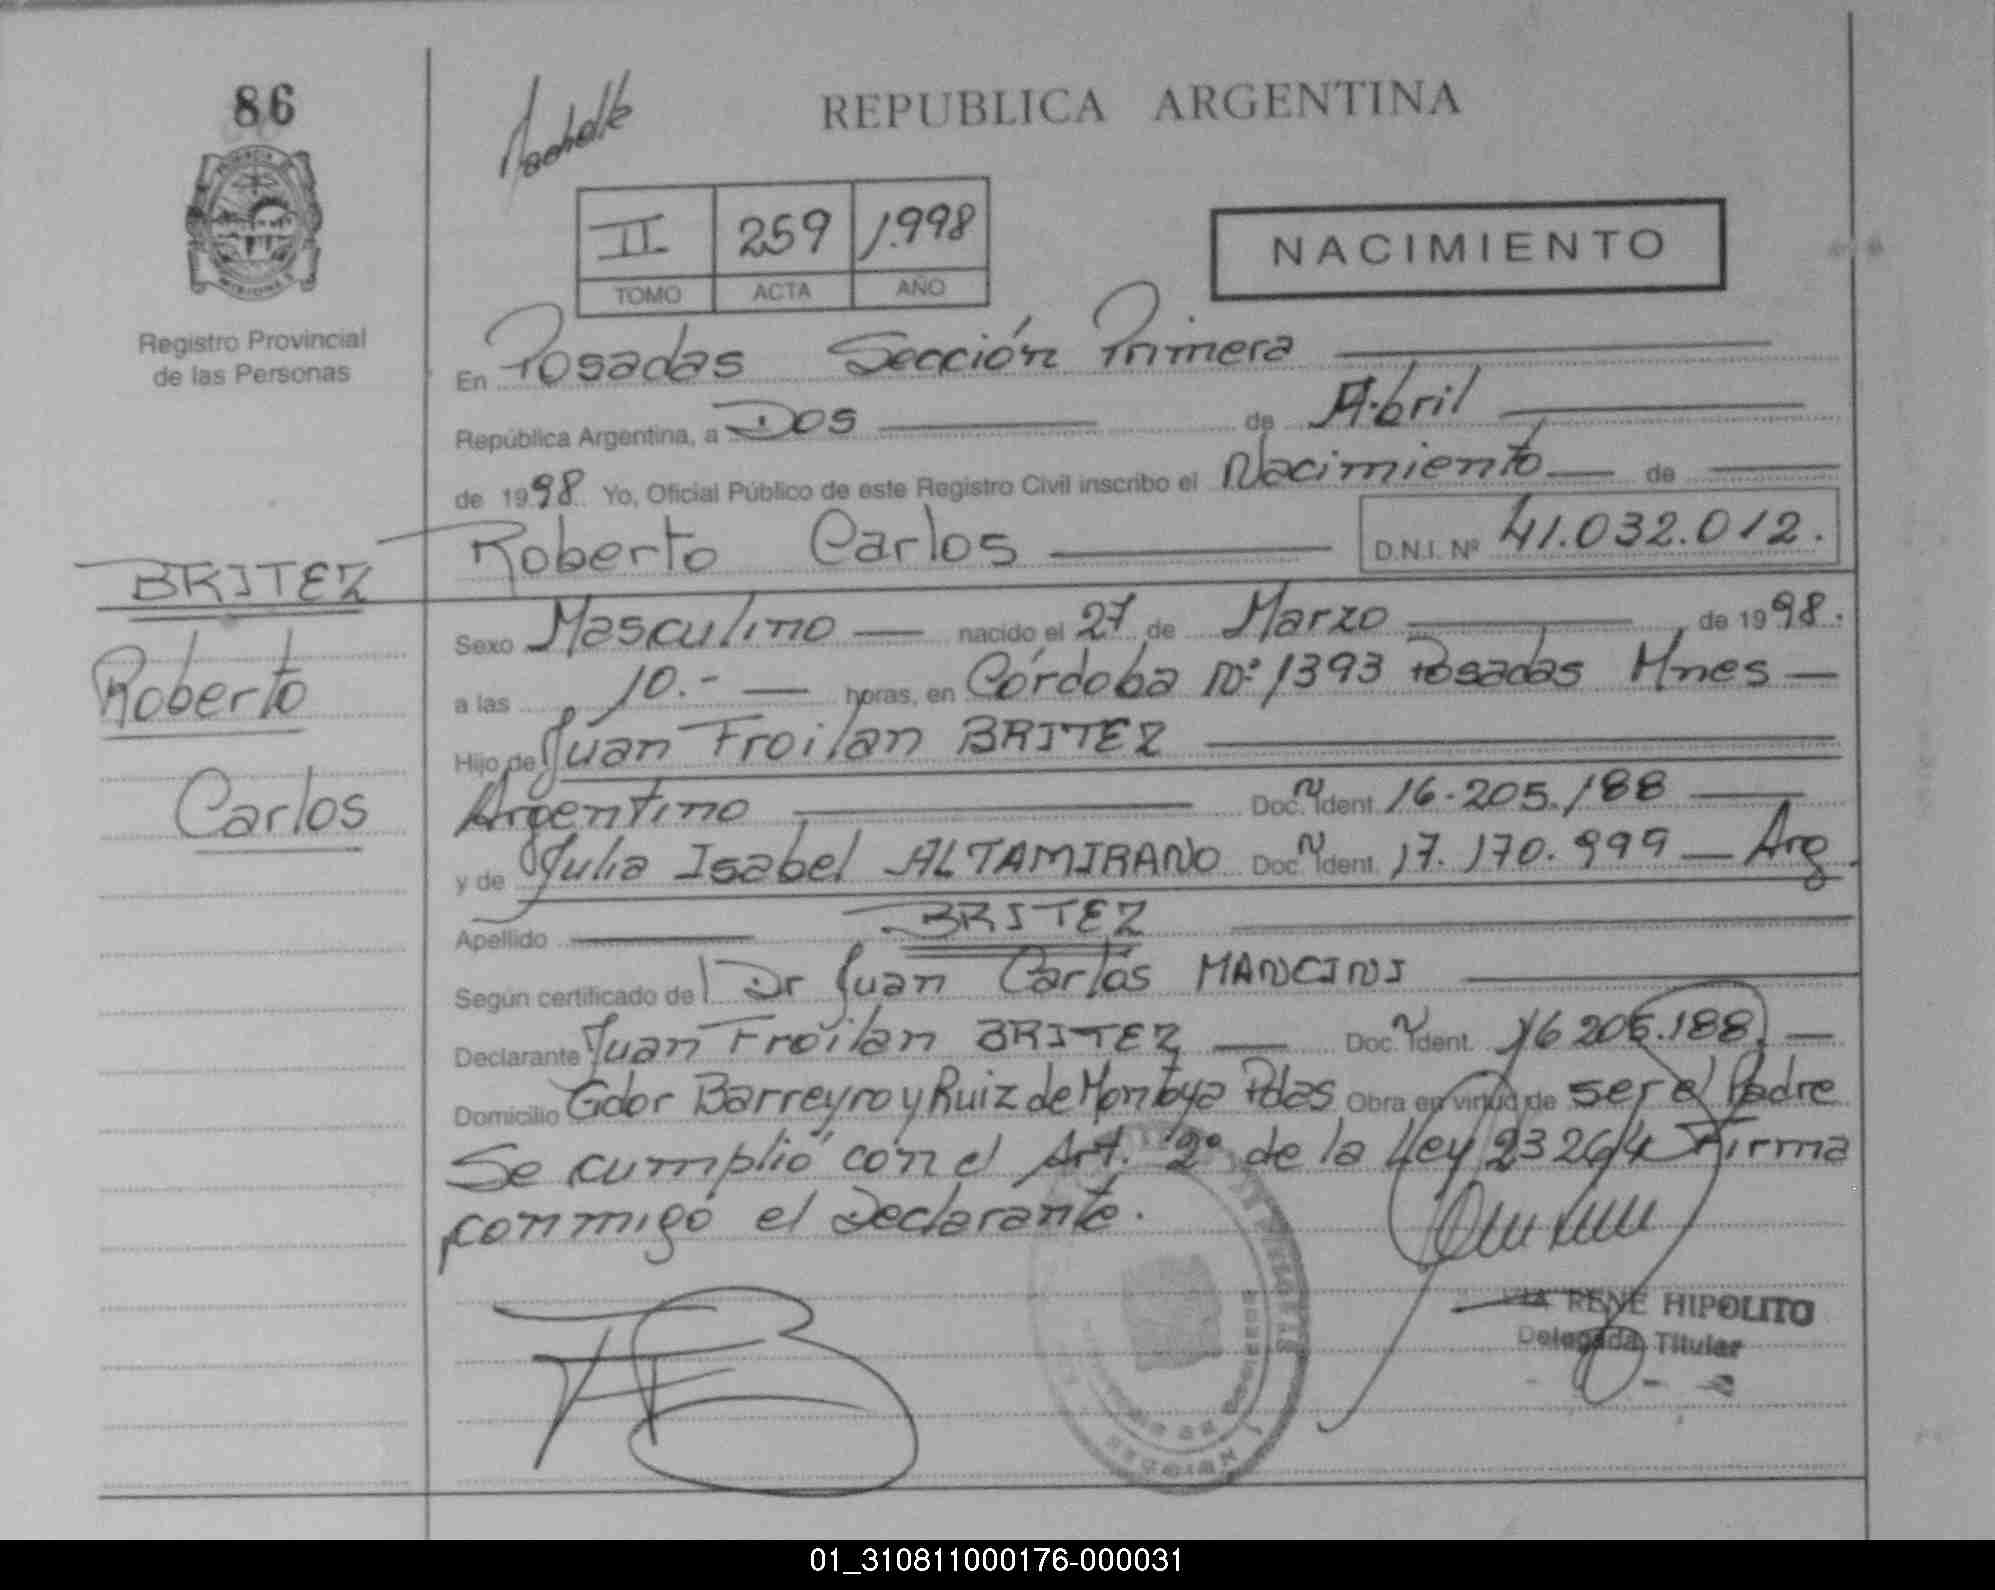 86
REPUBLICA ARGENTINA
II 259 1.998
TOMO ACTA AÑO
NACIMIENTO
Registro Provincial
de las Personas
En Posadas Sección Primera
República Argentina, a Dos de Abril
de 1998 Yo, Oficial Público de este Registro Civil inscribo el Nacimiento de
Roberto Carlos D.N.I. Nº 41.032.012.
BRITEZ
Roberto
Carlos
Sexo Masculino nacido el 27 de Marzo de 1998.
a las 10.- horas, en Córdoba Nº 1393 Posadas Mnes
Hijo de Juan Froilan BRITEZ
Argentino Doc. Ident. 16.205.188
y de Julia Isabel ALTAMIRANO Doc. Ident. 17.170.999 Arg.
Apellido BRITEZ
Según certificado de Dr Juan Carlos MANCINI
Declarante Juan Froilan BRITEZ Doc. Ident. 16 205.188
Domicilio Gdor Barreyro y Ruiz de Montoya Pdas Obra en virtud de ser el Padre
Se cumplió con el Art. 2º de la Ley 23264 Firma
conmigo el Declarante.
RENE HIPOLITO
Delegada Titular
01_310811000176-000031